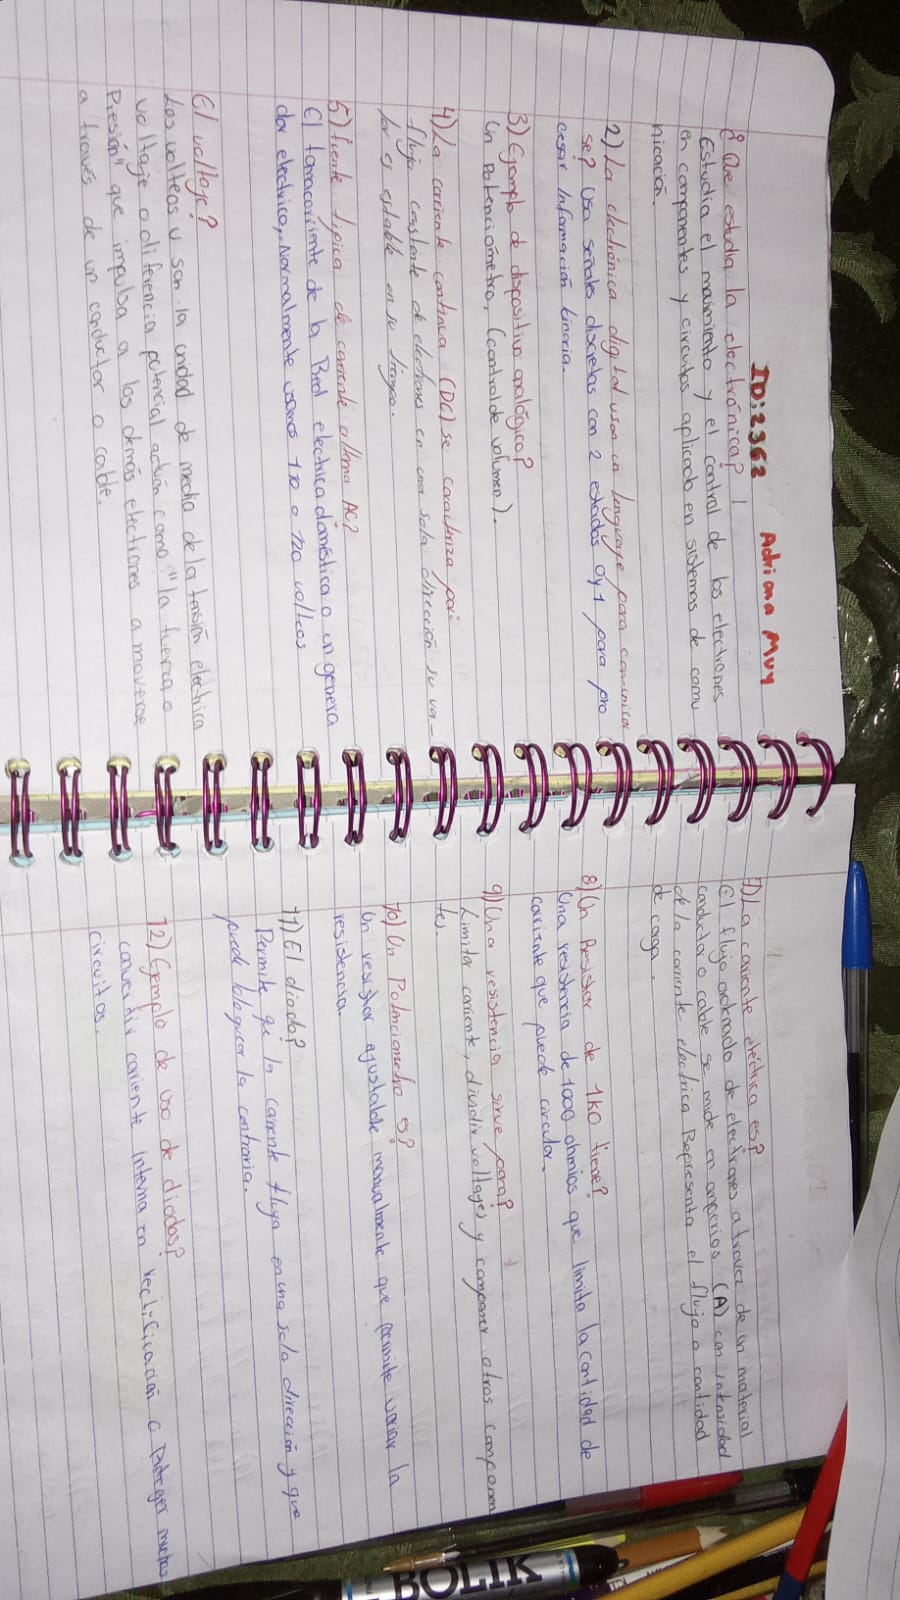 ID:2362 Adriana Muy
¿Que estudia la electrónica?
Estudia el movimiento y el control de los electrones
en componentes y circuitos aplicado en sistemas de comu
nicación.
2) La electrónica digital usa un lenguaje para comunicar
se? Usa señales discretas con 2 estados 0 y 1 para pro
cesar información binaria.
3) Ejemplo de dispositivo analógico?
Un Potenciómetro, (control de volumen).
4) La corriente continua (DC) se caracteriza por
flujo constante de electrones en una sola dirección su va-
lor es estable en su tiempo.
5) fuente típica de corriente alterna AC?
El tomacorriente de la Red electrica doméstica o un genera
dor electrico, Normalmente usamos 110 o 220 voltios
El voltaje?
Los volteos v son la unidad de media de la tensión electrica
voltaje o diferencia potencial actúan como "la fuerza o
Presión" que impulsa a los demás electrones a moverse
a través de un conductor o cable.
7) La corriente eléctrica es?
El flujo ordenado de electrones a travez de un material
conductor o cable se mide en amperios (A) con intensidad
de la corriente electrica Representa el flujo o cantidad
de carga.
8) Un Resistor de 1KΩ tiene?
Una resistencia de 1000 ohmios que limita la cantidad de
corriente que puede circular.
9) Una resistencia sirve para?
Limitar corriente, dividir voltajes y componer otros componen
tes.
10) Un Potenciometro es?
Un resistor ajustable manualmente que permite variar la
resistencia.
11) El diodo?
Permite que la corriente fluya en una sola dirección y que
puede bloquear la contraria.
12) Ejemplo de uso de diodos?
convertir corriente interna en rectificación o Proteger muchos
circuitos.
BOLIK